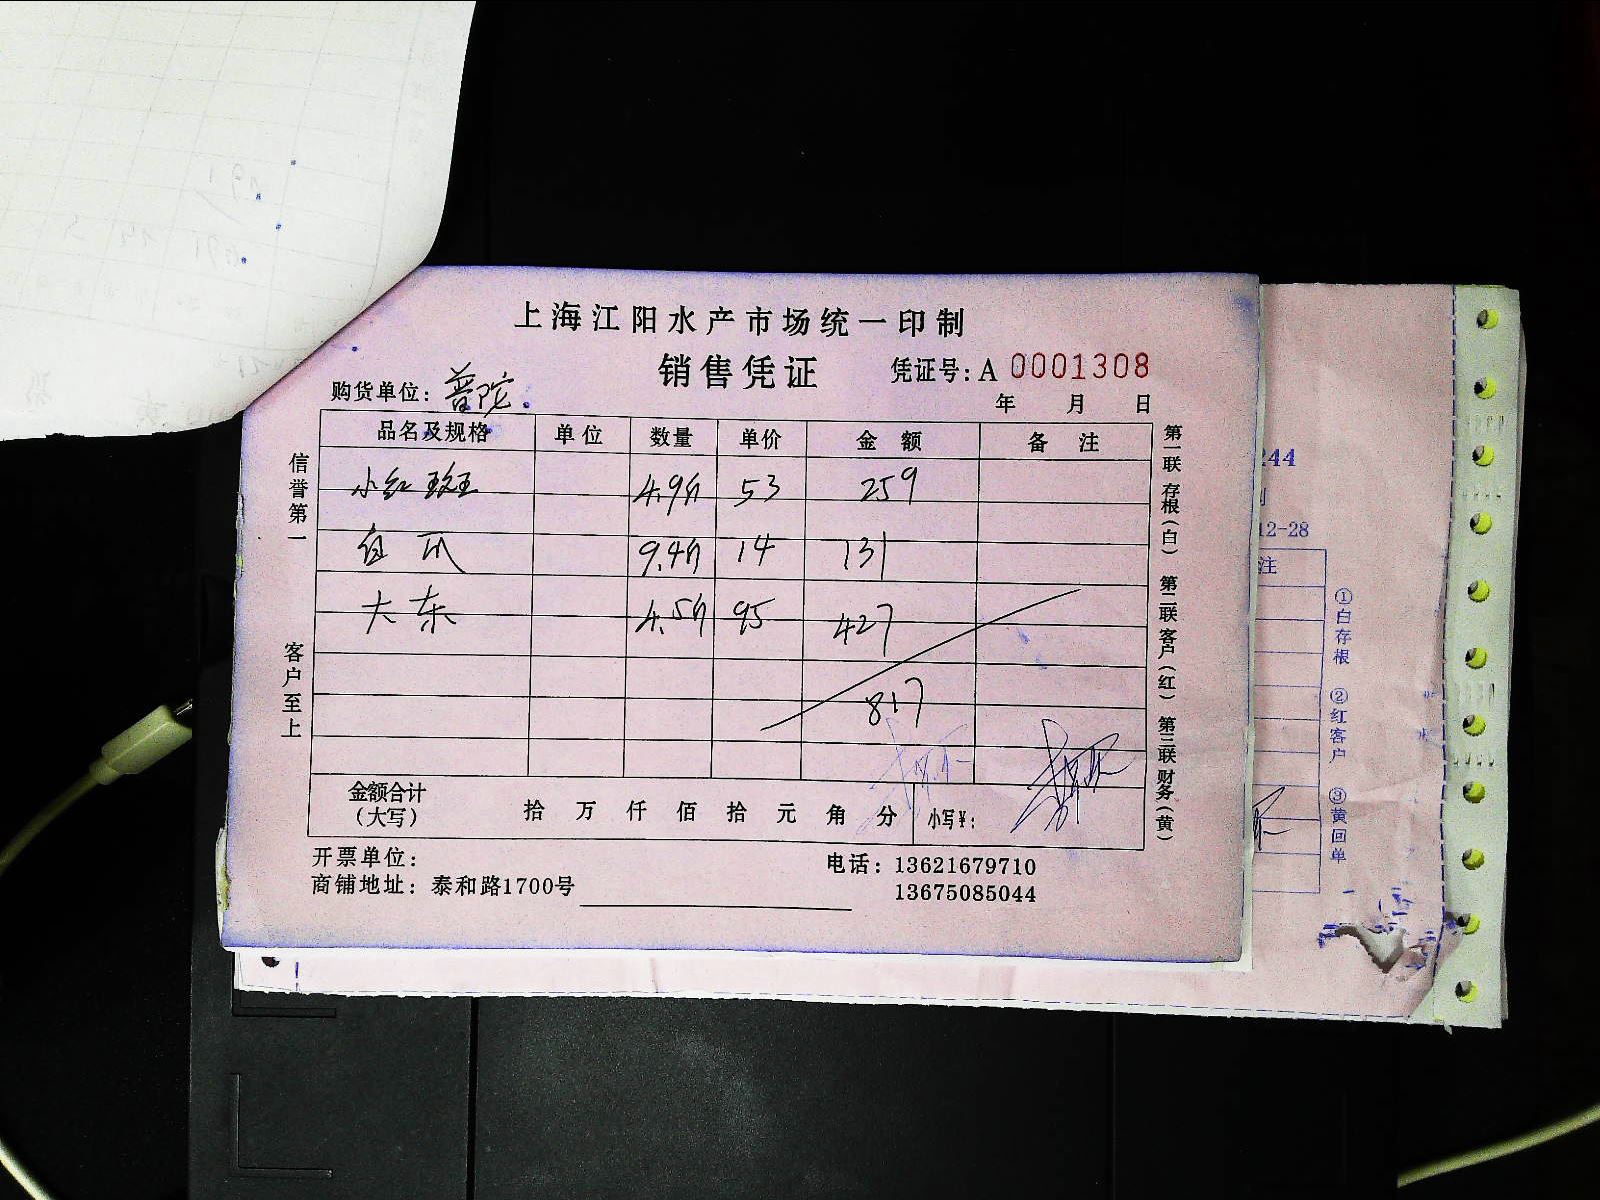 上海江阳水产市场统一印制
销售凭证 凭证号:A 0001308
购货单位: 普陀 年 月 日
品名及规格 单位 数量 单价 金额 备注
小红斑 4.9斤 53 259
9.4斤 14 131
大东 4.5斤 95 427
817
金额合计(大写) 拾 万 仟 佰 拾 元 角 分 小写¥:
开票单位: 电话: 13621679710
商铺地址: 泰和路1700号 13675085044
信誉第一
客户至上
第一联 存根(白) 第二联 客户(红) 第三联 财务(黄)
244
12-28
注
①白存根 ②红客户 ③黄回单